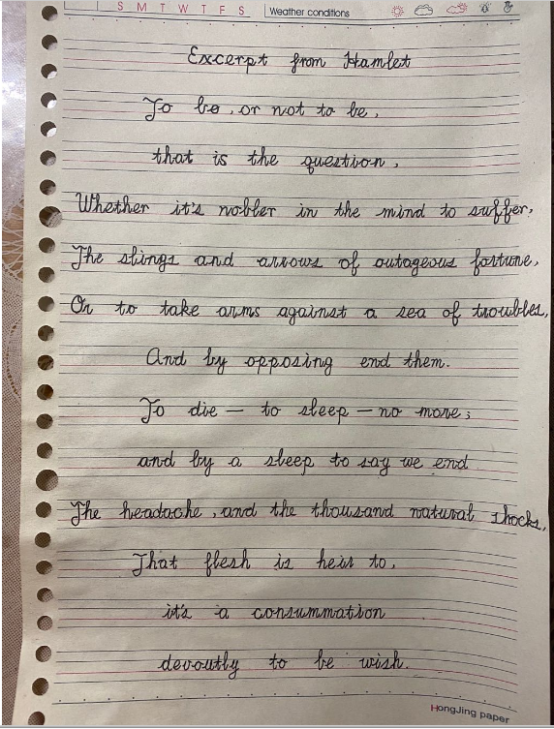 S M T W T F S Weather conditions
Excerpt from Hamlet
To be, or not to be,
that is the question,
Whether it's nobler in the mind to suffer,
The slings and arrows of outageous fortune,
Or to take arms against a sea of troubles,
And by opposing end them.
To die — to sleep — no more;
and by a sleep to say we end
The headache, and the thousand natural shocks,
That flesh is heir to,
it's a consummation
devoutly to be wish.
HongJing paper